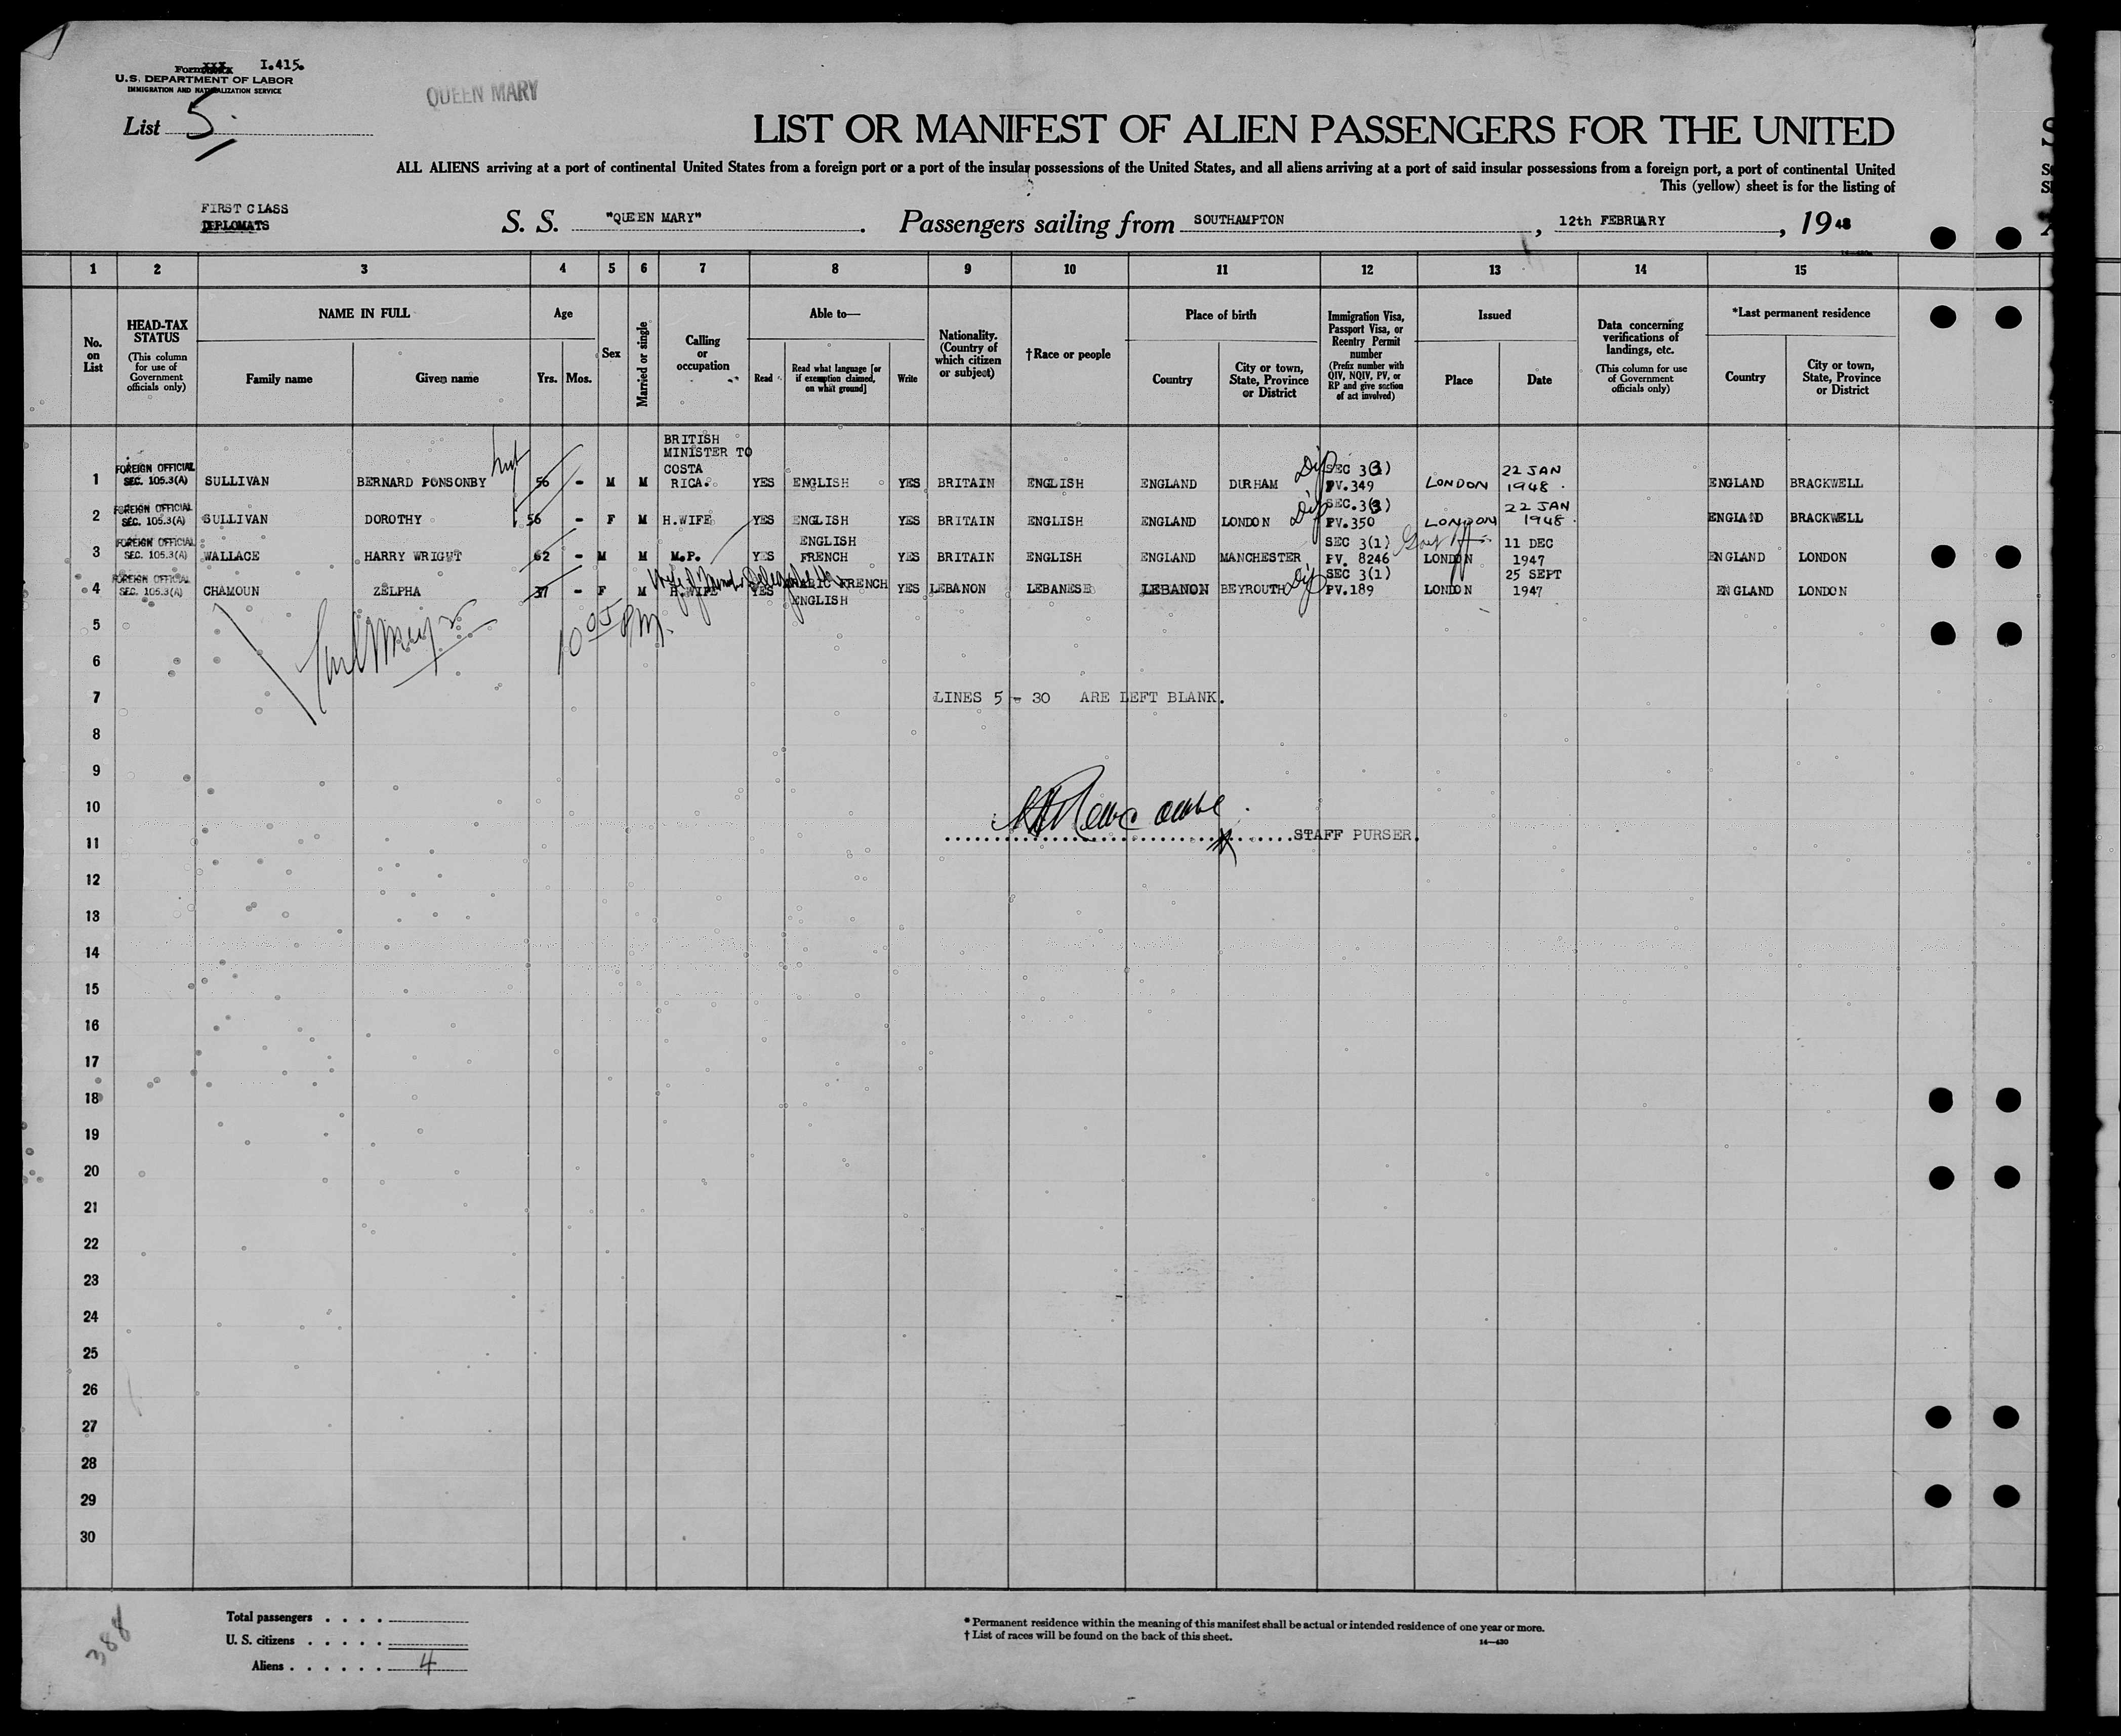 Form XXX I.415.
U.S. DEPARTMENT OF LABOR
IMMIGRATION AND NATURALIZATION SERVICE
QUEEN MARY
List 5.
LIST OR MANIFEST OF ALIEN PASSENGERS FOR THE UNITED
ALL ALIENS arriving at a port of continental United States from a foreign port or a port of the insular possessions of the United States, and all aliens arriving at a port of said insular possessions from a foreign port, a port of continental United
This (yellow) sheet is for the listing of
FIRST CLASS
DIPLOMATS
S. S. "QUEEN MARY". Passengers sailing from SOUTHAMPTON, 12th FEBRUARY, 1948
1 2 3 4 5 6 7 8 9 10 11 12 13 14 15
No. on List
HEAD-TAX STATUS (This column for use of Government officials only)
NAME IN FULL Family name Given name
Age Yrs. Mos.
Sex
Married or single
Calling or occupation
Able to— Read Read what language [or if exemption claimed, on what ground] Write
Nationality. (Country of which citizen or subject)
†Race or people
Place of birth Country City or town, State, Province or District
Immigration Visa, Passport Visa, or Reentry Permit number (Prefix number with QIV, NQIV, PV, or RP and give section of act involved)
Issued Place Date
Data concerning verifications of landings, etc. (This column for use of Government officials only)
*Last permanent residence Country City or town, State, Province or District
1 FOREIGN OFFICIAL SEC. 105.3(A) SULLIVAN BERNARD PONSONBY 56 - M M BRITISH MINISTER TO COSTA RICA. YES ENGLISH YES BRITAIN ENGLISH ENGLAND DURHAM Dip SEC 3(3) PV.349 LONDON 22 JAN 1948. ENGLAND BRACKWELL
2 FOREIGN OFFICIAL SEC. 105.3(A) SULLIVAN DOROTHY 56 - F M H.WIFE YES ENGLISH YES BRITAIN ENGLISH ENGLAND LONDON Dip SEC.3(3) PV.350 LONDON 22 JAN 1948. ENGLAND BRACKWELL
3 FOREIGN OFFICIAL SEC. 105.3(A) WALLACE HARRY WRIGHT 62 - M M M.P. YES ENGLISH FRENCH YES BRITAIN ENGLISH ENGLAND MANCHESTER SEC 3(1) PV. 8246 LONDON 11 DEC 1947 ENGLAND LONDON
4 FOREIGN OFFICIAL SEC. 105.3(A) CHAMOUN ZELPHA 37 - F M H.WIFE YES ARABIC FRENCH ENGLISH YES LEBANON LEBANESE LEBANON BEYROUTH Dip SEC 3(1) PV.189 LONDON 25 SEPT 1947 ENGLAND LONDON
5
10 05 PM.
6
7 LINES 5 - 30 ARE LEFT BLANK.
8
9
10
11 STAFF PURSER.
12
13
14
15
16
17
18
19
20
21
22
23
24
25
26
27
28
29
30
388
Total passengers . . . .
U. S. citizens . . . . .
Aliens . . . . . . 4
* Permanent residence within the meaning of this manifest shall be actual or intended residence of one year or more.
† List of races will be found on the back of this sheet.
14—430